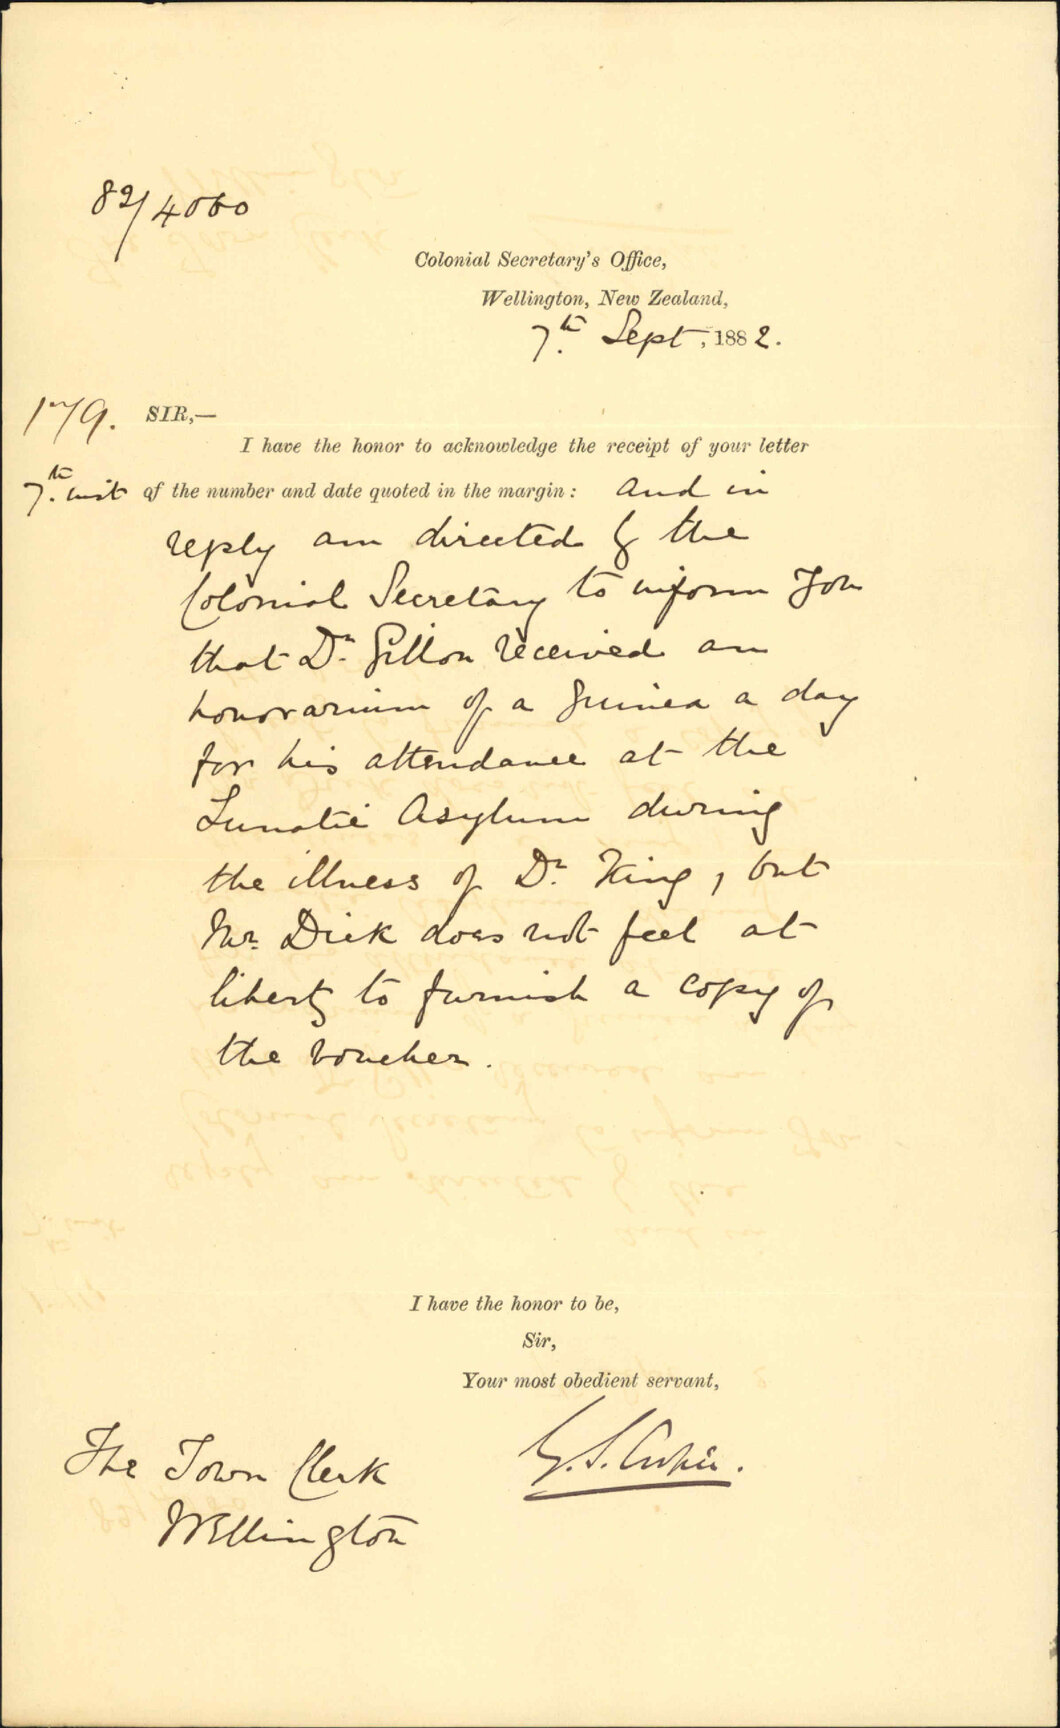 82/4060
Colonial Secretary's Office,
Wellington, New Zealand,
7th Sept, 1882.
179. SIR,—
I have the honor to acknowledge the receipt of your letter
7th inst of the number and date quoted in the margin: and in
reply am directed by the
Colonial Secretary to inform you
that Dr. Gillon received an
honorarium of a guinea a day
for his attendance at the
Lunatic Asylum during
the illness of Dr. King, but
Mr. Dick does not feel at
liberty to furnish a copy of
the voucher.
I have the honor to be,
Sir,
Your most obedient servant,
G. S. Cooper.
The Town Clerk
Wellington